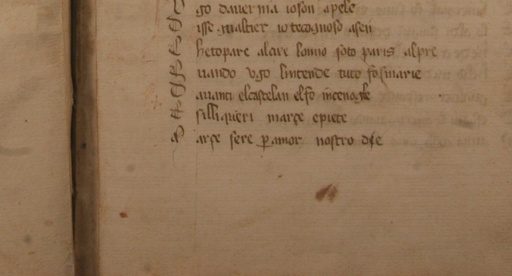 V go daver ma ioson apele
D isse gualtier io tecognoso asen
E hetopare alcire lonno soto paris alpre
Q uando vgo lintende tuto sosmarie
D auanti elcastelan elfo incenogle
E silli queri marçe epiete
M arçe sere p amor nostro dse